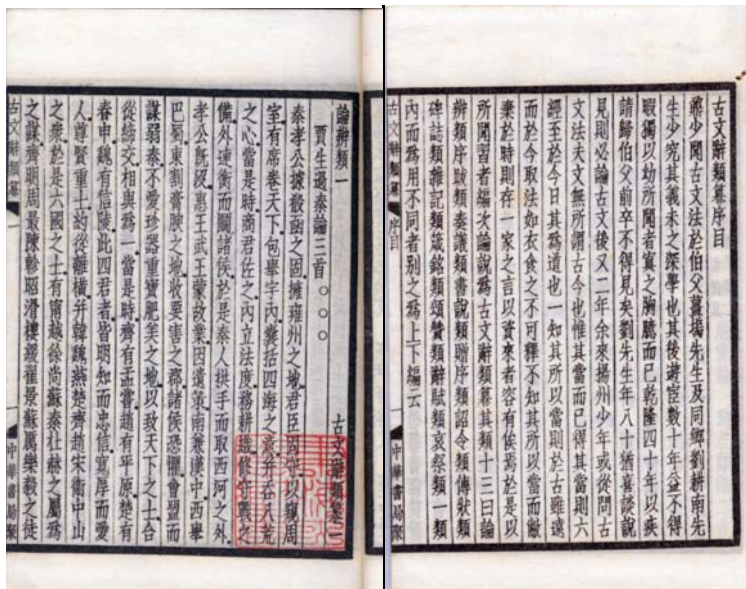 古文辭類纂序目
鼐少聞古文法於伯父薑塢先生及同鄉劉耕南先
生少究其義未之深學也其後遊宦數十年益不得
暇獨以幼所聞者寘之胸臆而已乾隆四十年以疾
請歸伯父前卒不得見矣劉先生年八十猶喜談說
見則必論古文後又二年余來揚州少年或從問古
文法夫文無所謂古今也惟其當而已得其當則六
經至於今日其爲道也一知其所以當則於古雖遠
而於今取法如衣食之不可釋不知其所以當而敝
棄於時則存一家之言以資來者容有俟焉於是以
所聞習者編次論說爲古文辭類纂其類十三曰論
辨類序跋類奏議類書說類贈序類詔令類傳狀類
碑誌類雜記類箴銘類頌贊類辭賦類哀祭類一類
內而爲用不同者別之爲上下編云
古文辭類纂 序目 一 中華書局聚
論辨類一 古文辭類纂一
賈生過秦論三首○○○
秦孝公據殽函之固擁雍州之地君臣固守以窺周
室有席卷天下包舉宇內囊括四海之意并吞八荒
之心當是時商君佐之內立法度務耕織修守戰之
備外連衡而鬬諸侯於是秦人拱手而取西河之外
孝公既沒惠王武王蒙故業因遺策南兼漢中西舉
巴蜀東割膏腴之地收要害之郡諸侯恐懼會盟而
謀弱秦不愛珍器重寶肥美之地以致天下之士合
從締交相與爲一當是時齊有孟嘗趙有平原楚有
春申魏有信陵此四君者皆明知而忠信寬厚而愛
人尊賢重士約從離橫并韓魏燕楚齊趙宋衛中山
之衆於是六國之士有甯越徐尚蘇秦杜赫之屬爲
之謀齊明周最陳軫昭滑樓緩翟景蘇厲樂毅之徒
古文辭類纂 一 一 中華書局聚